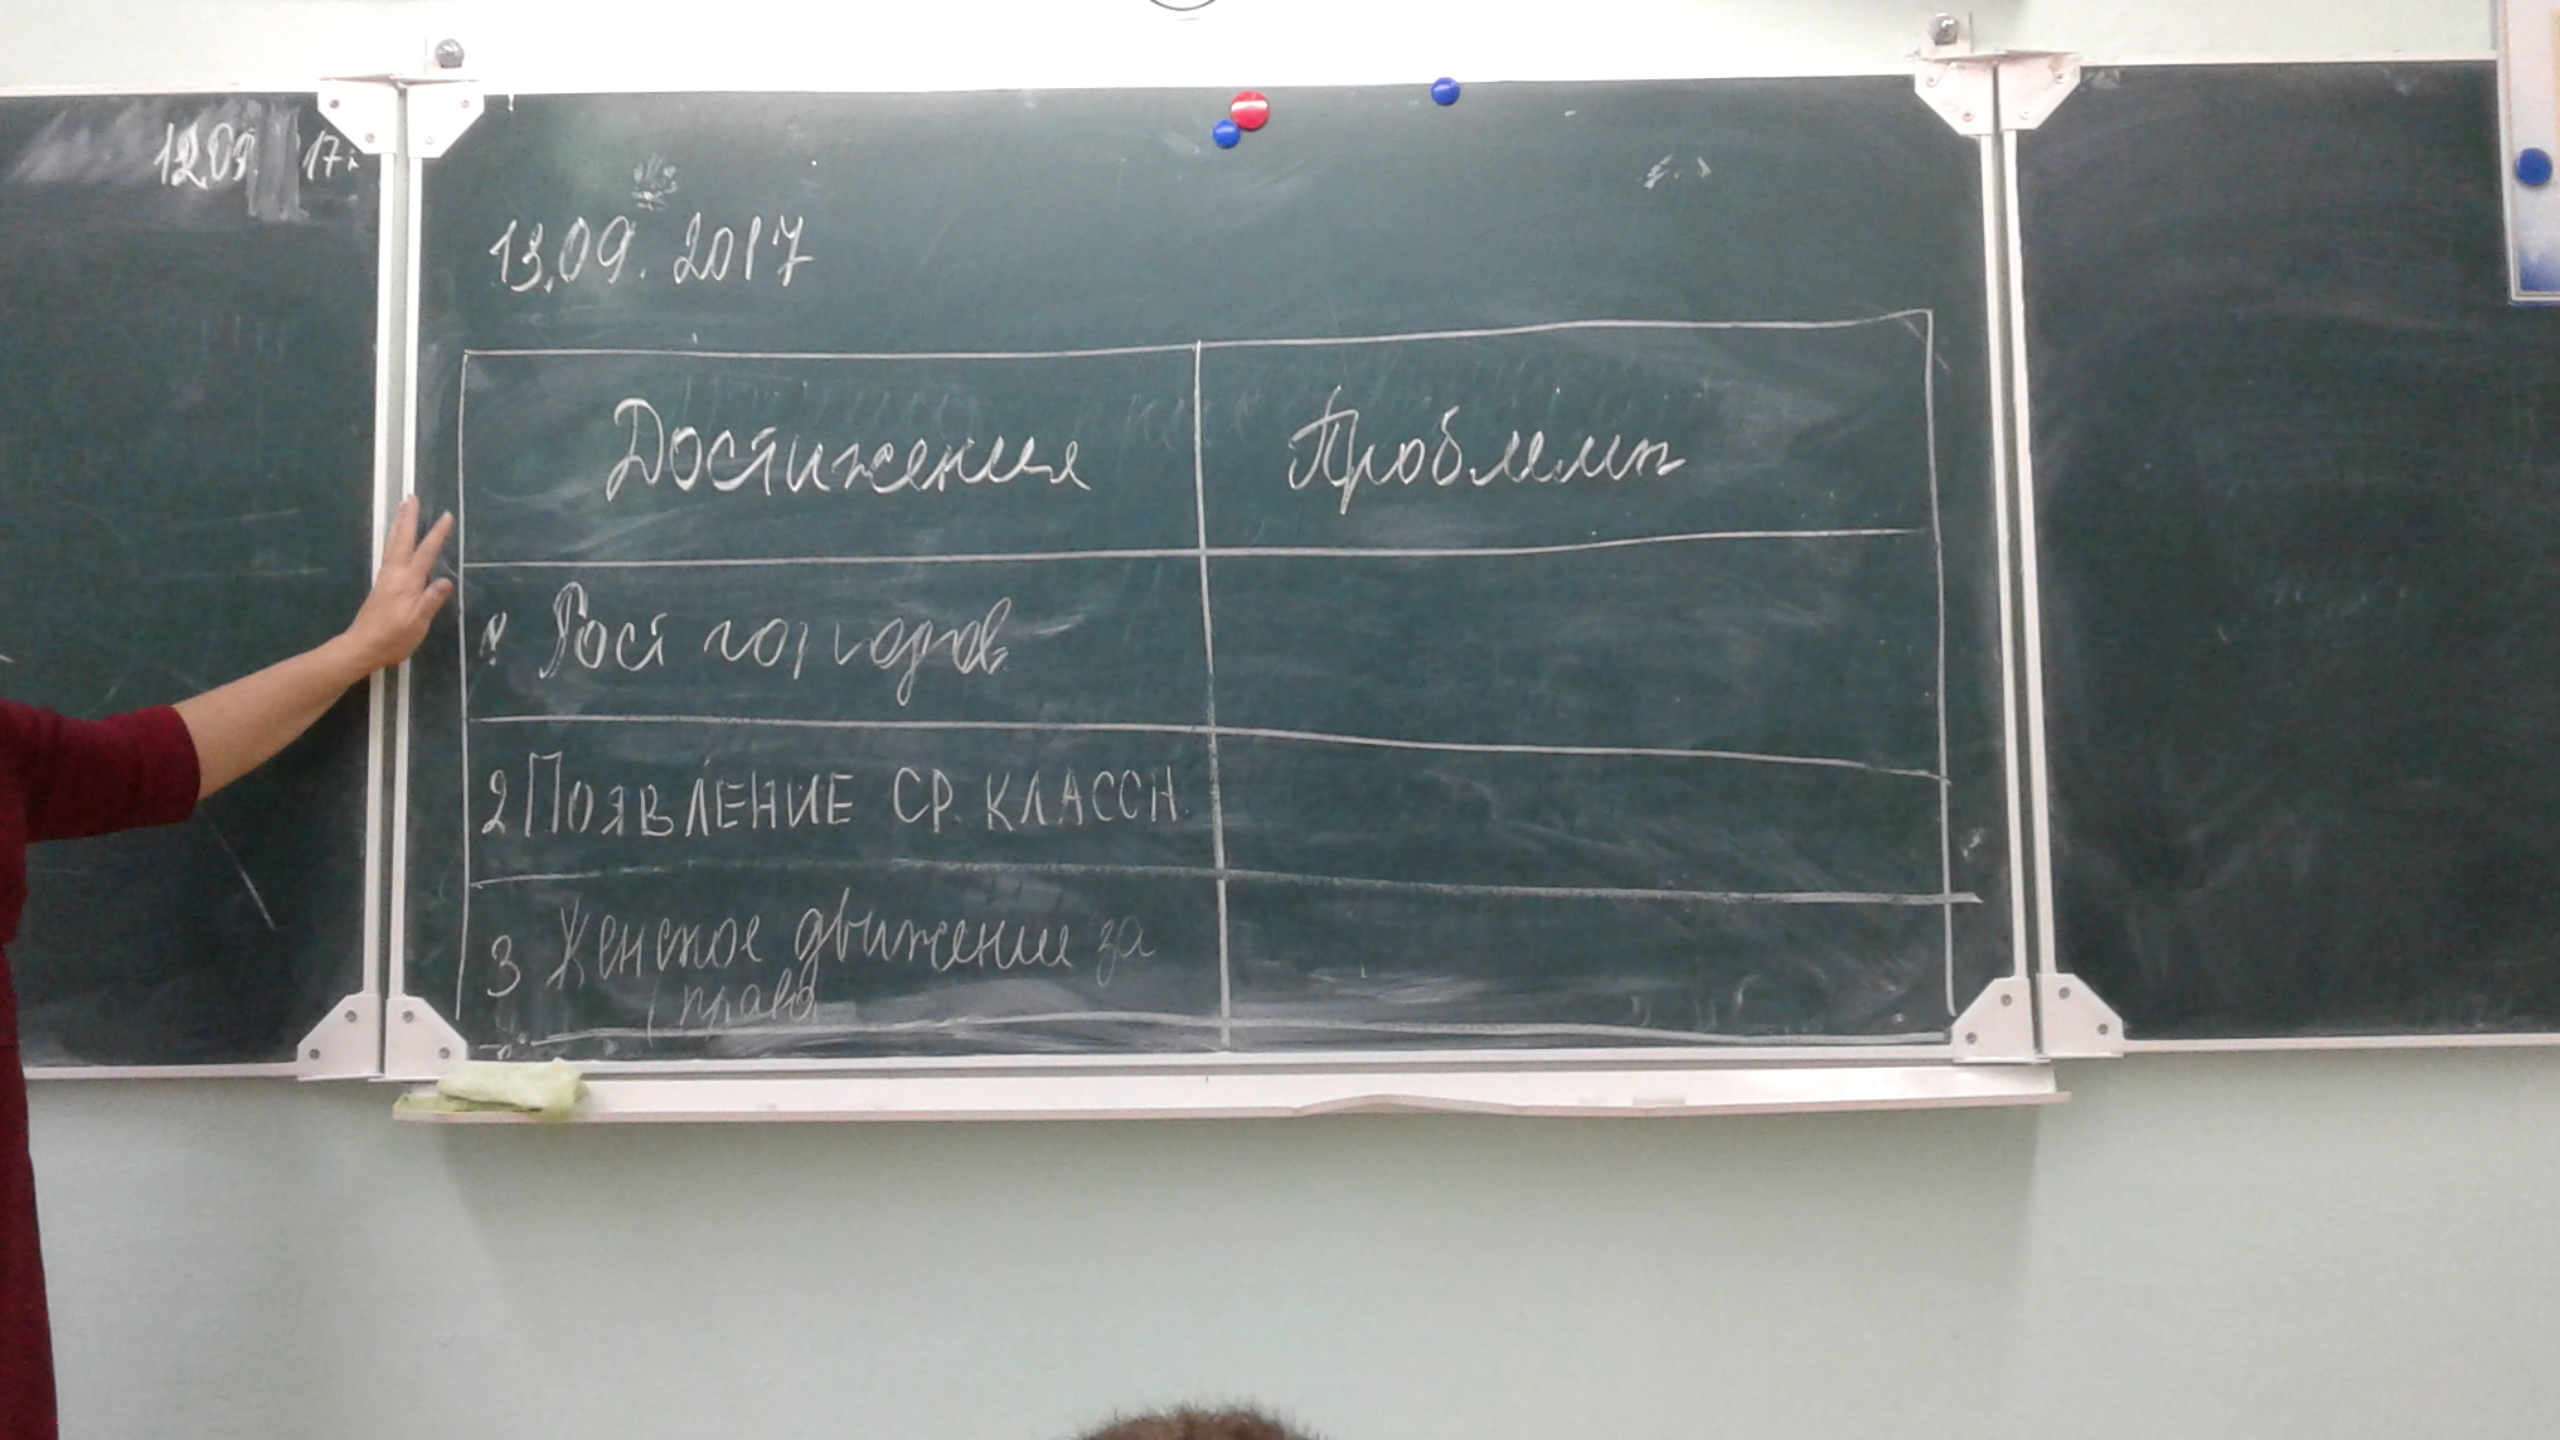 12.09. 17г
13.09.2017
Достижения
Проблемы
Рост городов
2 ПОЯВЛЕНИЕ СР. КЛАССН.
3 Женское движение за
права